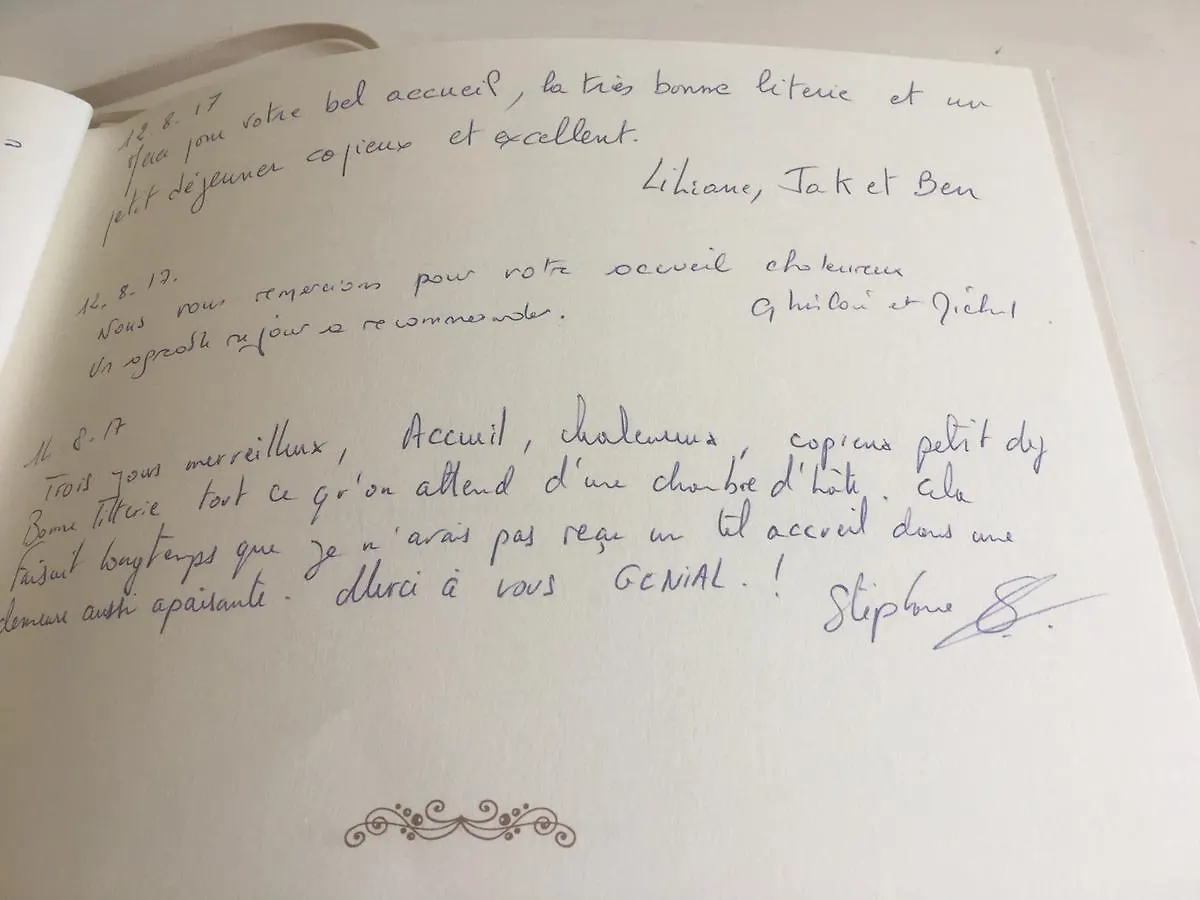 12.8.17
Merci pour votre bel accueil, la très bonne literie et un
petit déjeuner copieux et excellent.
Liliane, Jak et Ben
12.8.17.
Nous vous remercions pour votre accueil chaleureux
Un agreable sejour a recommander.
et Michel
8.17
Trois jours merveilleux, Accueil, chaleureux, copieux petit dej
Bonne litterie tout ce qu'on attend d'une chambre d'hôte. Cela
Faisait longtemps que je n'avais pas reçu un tel accueil dans une
demeure aussi apaisante. Merci à vous GENIAL. !
Stéphane